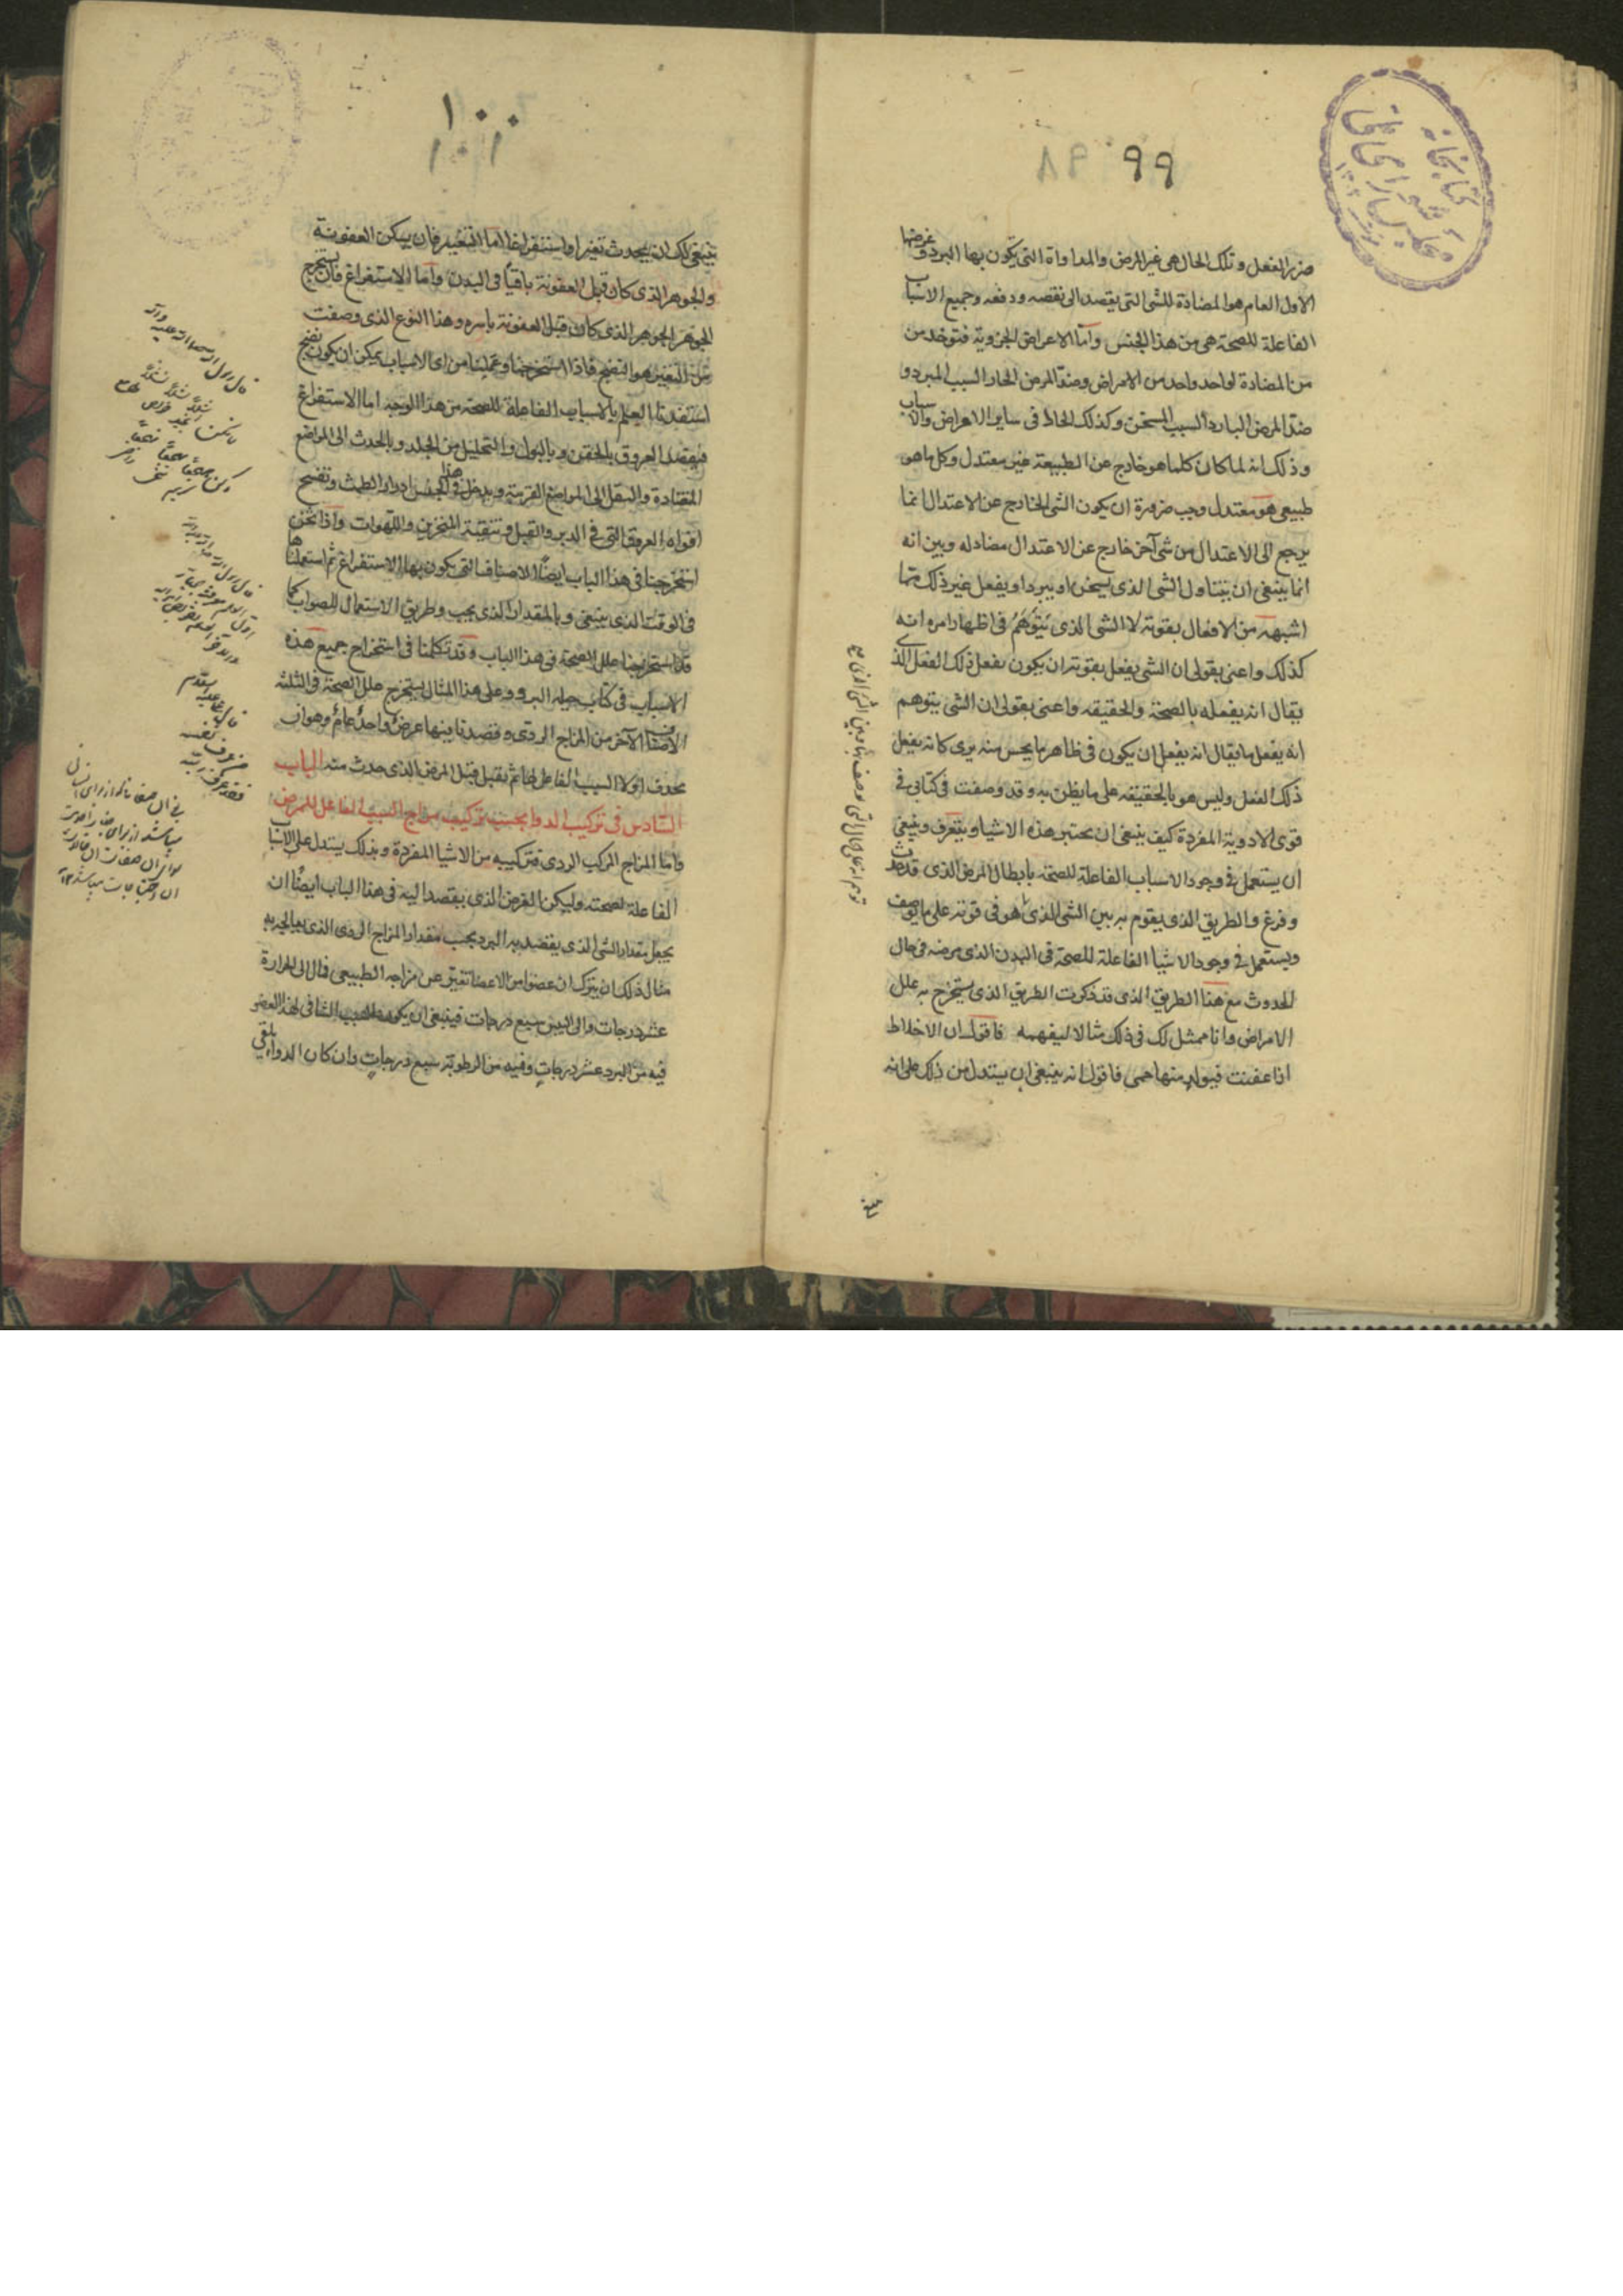 ٩٩
ضرر الفعل وتلك الحال هى غير المرض والمداواة التى يكون بها البرد وغرضها
الاول العام هو المضادة للشى التى يقصد الى نقصه ودفعه وجميع الاسباب
الفاعلة للصحة هى من هذا الجنس واما الاعراض الجزوية فتوخد من
من المضادة لواحد واحد من الامراض وضد المرض الحار السبب المبرد و
ضد المرض البارد السبب المسخن وكذلك الحال فى ساير الامراض والاسباب
وذلك انه لما كان كلما هو خارج عن الطبيعة غير معتدل وكل ما هو
طبيعى هو معتدل وجب ضرورة ان يكون الشى الخارج عن الاعتدال انما
يرجع الى الاعتدال من شى آخر خارج عن الاعتدال مضاد له وبين انه
انما ينبغى ان يتناول الشى الذى يسخن او يبرد او يفعل غير ذلك مما
اشبهه من الافعال بقوته لا الشى الذى يتوهم فى اظهار امره انه
كذلك واعنى بقولى ان الشى يفعل بقوته ان يكون يفعل ذلك الفعل الذى
يقال انه يفعله بالصحة والحقيقه واعنى بقولى ان الشى يتوهم
انه يفعل ما يقال انه يفعل ان يكون فى ظاهر ما يحس منه يرى كانه يفعل
ذلك الفعل وليس هو بالحقيقه على ما يظن به وقد وصفت فى كتابى فى
قوى الادوية المفردة كيف ينبغى ان يختبر هذه الاشيا ويتعرف وينبغى
ان يستعمل فى وجود الاسباب الفاعلة للصحة بابطال المرض الذى قد حدث
وفرغ والطريق الذى يقوم به بين الشى الذى هو فى قوته على ما يوصف
ويستعمل فى وجود الاشيا الفاعلة للصحة فى البدن الذى مرضه فى حال
الحدوث مع هذا الطريق الذى قد ذكرت الطريق الذى يستخرج به علل
الامراض وانا ممثل لك فى ذلك مثالا ليفهمه فاقول ان الاخلاط
اذا عفنت فيولد منها حمى فاقول انه ينبغى ان يستدل من ذلك على انه
١٠٠
ينبغى لك ان يحدث تغيرا واستفراغا اما التغيير فان يسكن العفونة
والجوهر الذى كان قبل العفونة باقيا فى البدن واما الاستفراغ فان يستخرج
الجوهر الذى كان قبل العفونة باسره وهذا النوع الذى وصفت
من التغير هو النضج فاذا استخرجنا وعملنا من اى الاسباب يمكن ان يكون نضج
استفدنا العلم بالاسباب الفاعلة للصحة من هذا الوجه اما الاستفراغ
فبفصد العروق بالحقن وبالبول والتحليل من الجلد وبالحدث الى المواضع
المتضادة والنقل الى المواضع القريبة ويدخل فى هذا الجنس ادرار الطمث وتفتيح
افواه العروق التى فى الدبر والقبل وتنقية المنخرين واللهوات واذا نحن
استخرجنا فى هذا الباب ايضا الاصناف التى يكون بها الاستفراغ ثم استعملناها
فى الوقت الذى ينبغى وبالمقدار الذى يجب وطريق الاستعمال للصواب كما
قد استخرجنا علل الصحة فى هذا الباب وقد تكلمنا فى استخراج جميع هذه
الاسباب فى كتاب حيله البرء وعلى هذا المثال يستخرج علل الصحة فى الثلثة
الاصناف الآخر من المزاج الردى وقصدنا فيها عرض واحد عام وهو ان
نحذف اولا السبب الفاعل لها ثم يقبل قبل المرض الذى حدث منه الباب
السادس فى تركيب الدوا بحسب تركيب مزاج السبب الفاعل للمرض
واما المزاج المركب الردى فتركيبه من الاشيا المفردة وبذلك يستدل على الاسباب
الفاعلة لصحته وليكن الغرض الذى يقصد اليه فى هذا الباب ايضا ان
يجعل مقدار الشى الذى يقصد به البرد بحسب مقدار المزاج الردى الذى يعالج به
مثال ذلك ان يترك ان عضوا من الاعضا تغير عن مزاجه الطبيعى فمال الى الحرارة
عشر درجات والى اليبس سبع درجات فينبغى ان يكون السبب الشافى لهذا العضو
فيه من البرد عشر درجات وفيه من الرطوبة سبع درجات وان كان الدوا يلقى